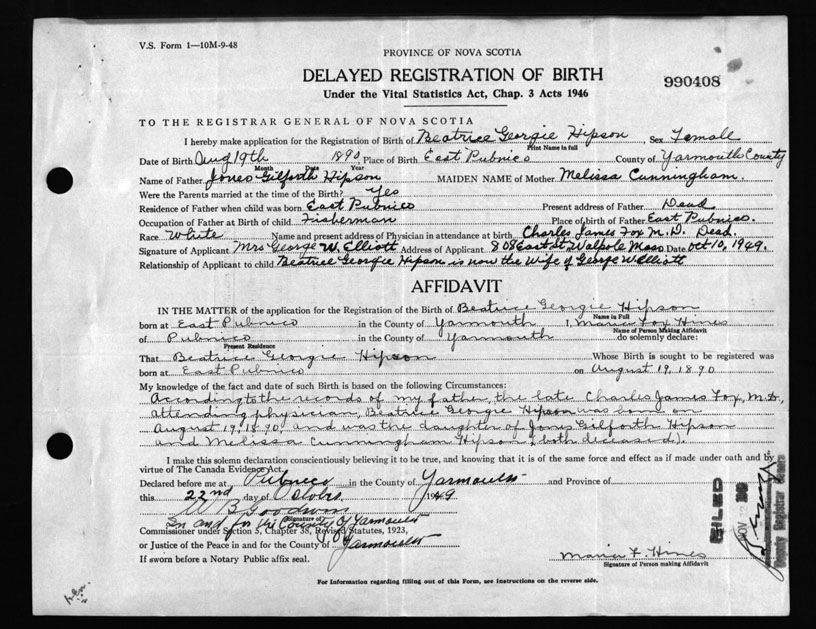 V.S. Form 1—10M-9-48
PROVINCE OF NOVA SCOTIA
DELAYED REGISTRATION OF BIRTH
990408
Under the Vital Statistics Act, Chap. 3 Acts 1946
TO THE REGISTRAR GENERAL OF NOVA SCOTIA
I hereby make application for the Registration of Birth of Beatrice Georgie Hipson, Sex Female
Print Name in full
Date of Birth Aug 19th 1890, Place of Birth East Pubnico County of Yarmouth County
Month Date Year
Name of Father Jones Gilforth Hipson MAIDEN NAME of Mother Melissa Cunningham.
Were the Parents married at the time of the Birth? Yes
Residence of Father when child was born East Pubnico Present address of Father Dead
Occupation of Father at Birth of child Fisherman Place of birth of Father East Pubnico.
Race White Name and present address of Physician in attendance at birth Charles James Fox M.D. Dead.
Signature of Applicant Mrs George W. Elliott Address of Applicant 808 East St Walpole Mass Date Oct 10, 1949.
Relationship of Applicant to child Beatrice Georgie Hipson is now the wife of George W Elliott
AFFIDAVIT
IN THE MATTER of the application for the Registration of the Birth of Beatrice Georgie Hipson
Name in Full
born at East Pubnico in the County of Yarmouth I, Maria Fox Hines
Name of Person Making Affidavit
of Pubnico in the County of Yarmouth do solemnly declare:
Present Residence
That Beatrice Georgie Hipson Whose Birth is sought to be registered was
born at East Pubnico on August 19, 1890
My knowledge of the fact and date of such Birth is based on the following Circumstances:
According to the records of my father, the late Charles James Fox, M.D.,
attending physician, Beatrice Georgie Hipson was born on
August 19, 1890, and was the daughter of Jones Gilforth Hipson
and Melissa Cunningham Hipson, (both deceased).
I make this solemn declaration conscientiously believing it to be true, and knowing that it is of the same force and effect as if made under oath and by
virtue of The Canada Evidence Act.
Declared before me at Pubnico in the County of Yarmouth and Province of
this 22nd day of Octobr. 1949
W B Goodwin
Signature of
In and for the County of Yarmouth
Commissioner under Section 5, Chapter 38, Revised Statutes, 1923,
or Justice of the Peace in and for the County of Yarmouth
If sworn before a Notary Public affix seal.
Maria F. Hines
Signature of Person making Affidavit
FILED
NOV
Deputy Registrar General
For Information regarding filling out of this Form, see Instructions on the reverse side.